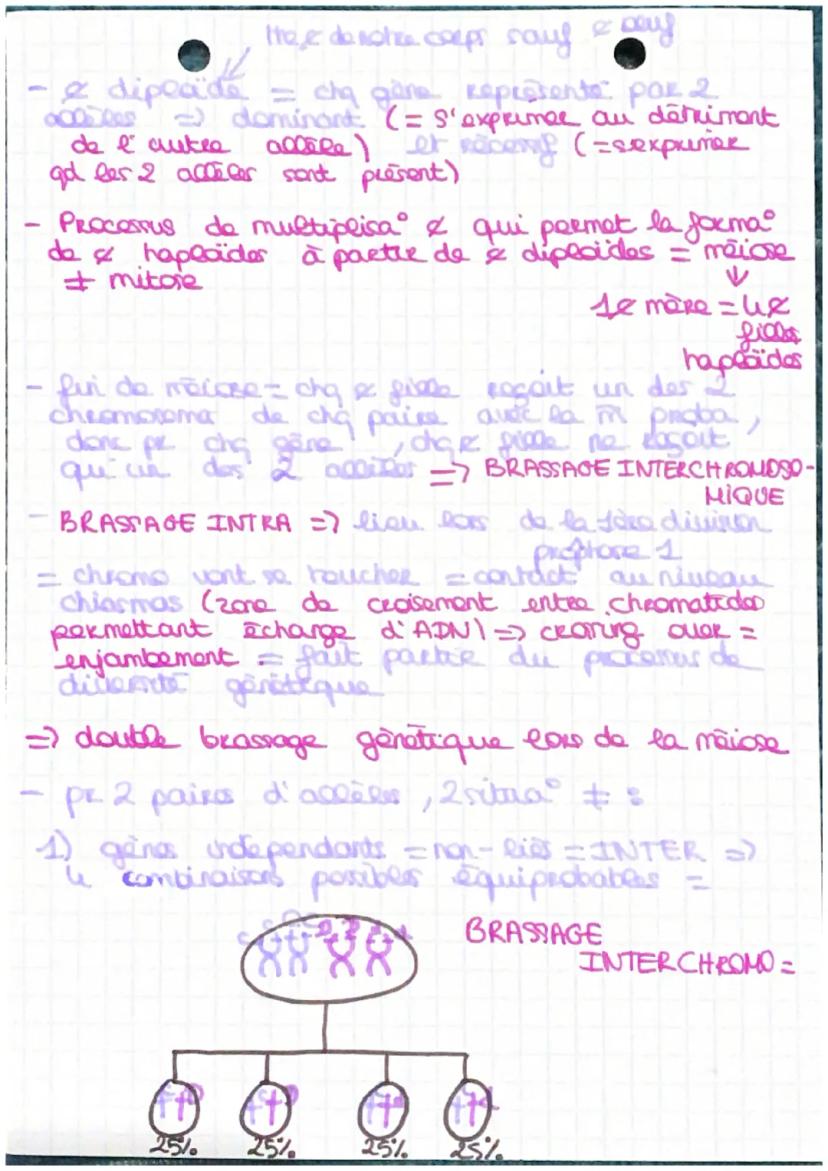 ttes ¢ de notre corps sauf ¢ œuf
- ¢ diploïde = chq gène représenté par 2
allèles => dominant (= s'exprimer au détriment
de l'autre allèle) et récessif (= s'exprimer
qd les 2 allèles sont présent)
- Processus de multiplisa° ¢ qui permet la forma°
de ¢ haploïdes à partir de ¢ diploïdes = méiose
≠ mitose
1¢ mère = 4¢
filles
haploïdes
- fin de méiose = chq ¢ fille reçoit un des 2
chromosome de chq paire avec la m̄ proba,
donc pr chq gène, chq ¢ fille ne reçoit
qu'un des 2 allèles => BRASSAGE INTERCHROMOSO-
MIQUE
- BRASSAGE INTRA => lieu lors de la 1ère division
prophase 1
= chromo vont se toucher = contact au niveau
chiasmas (zone de croisement entre chromatides
permettant échange d'ADN) => crossing over =
enjambement = fait partie du processus de
diversité génétique
=> double brassage génétique lors de la méiose
- pr 2 paires d'allèles, 2 situa° ≠ :
1) gènes indépendants = non-liés = INTER =>
4 combinaisons possibles équiprobables =
BRASSAGE
INTERCHROMO =
25% 25% 25% 25%